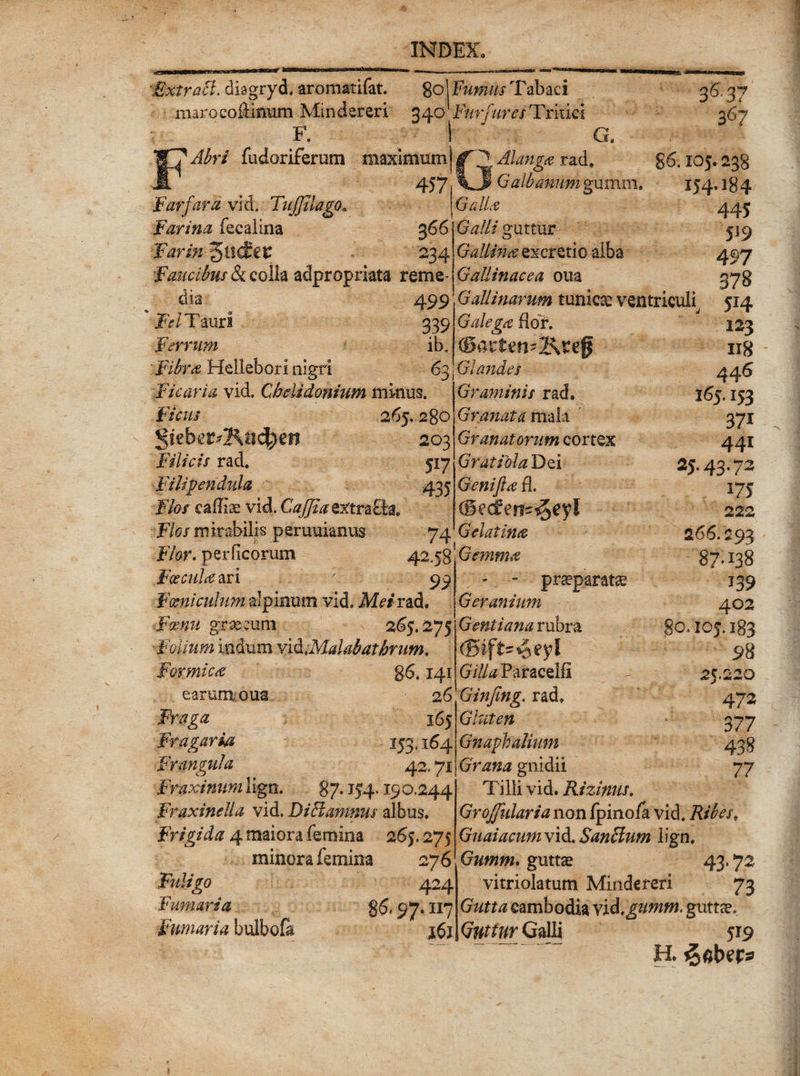 INDEX.
Extract. diagryd. aromatisat. 80
marocostinum Mindereri 340
F.
FAbri sudoriferum maximum
457
Farfara vid. Tussilago.
Farina secalina 366
Farin Zucker 234
Faucibus & colla adpropriata reme-
dia 499
Fel Tauri 339
Ferrum ib.
Fibræ Hellebori nigri 63
Ficaria vid. Chelidonium minus.
Ficus 265. 280
Fieber-Kuchen 203
Filicis rad. 517
Filipendula 435
Flos cassiæ vid. Cassia extracta.
Flos mirabilis peruuianus 74
Flor. persicorum 42.58
Fœculæ ari 99
Fœniculum alpinum vid. Mei rad.
Fœnu græcum 265. 275
Folium indum vid. Malabathrum.
Formicæ 86. 141
earum oua 26
Fraga 165
Fragaria 153. 164
Frangula 42. 71
Fraxinum lign. 87. 154. 190. 244
Fraxinella vid. Dictamnus albus.
Frigida 4 maiora semina 265. 275
minora semina 276
Fuligo 424
Fumaria 86. 97. 117
Fumaria bulbosa 161
Fumus Tabaci 36. 37
Furfures Tritici 367
G.
GAlangæ rad. 86. 105. 238
Galbanum gumm. 154. 184
Gallæ 445
Galli guttur 519
Gallinæ excretio alba 497
Gallinacea oua 378
Gallinarum tunicæ ventriculi 514
Galegæ flor. 123
Garten-Kreß 118
Glandes 446
Graminis rad. 165. 153
Granata mala 371
Granatorum cortex 441
Gratiola Dei 25. 43. 72
Genistæ fl. 175
Gecken-Heyl 222
Gelatinæ 266. 293
Gemmæ 87. 138
- - præparatæ 139
Geranium 402
Gentiana rubra 80. 105. 183
Gift-Heyl 98
Gilla Paracelsi 25. 220
Ginsing. rad. 472
Gluten 377
Gnaphalium 438
Grana gnidii 77
Tilli vid. Rizinus.
Grossularia non spinosa vid. Ribes.
Guaiacum vid. Sanctum lign.
Gumm. guttæ 43. 72
vitriolatum Mindereri 73
Gutta cambodia vid. gumm. guttæ.
Guttur Galli 519
H. Haber-